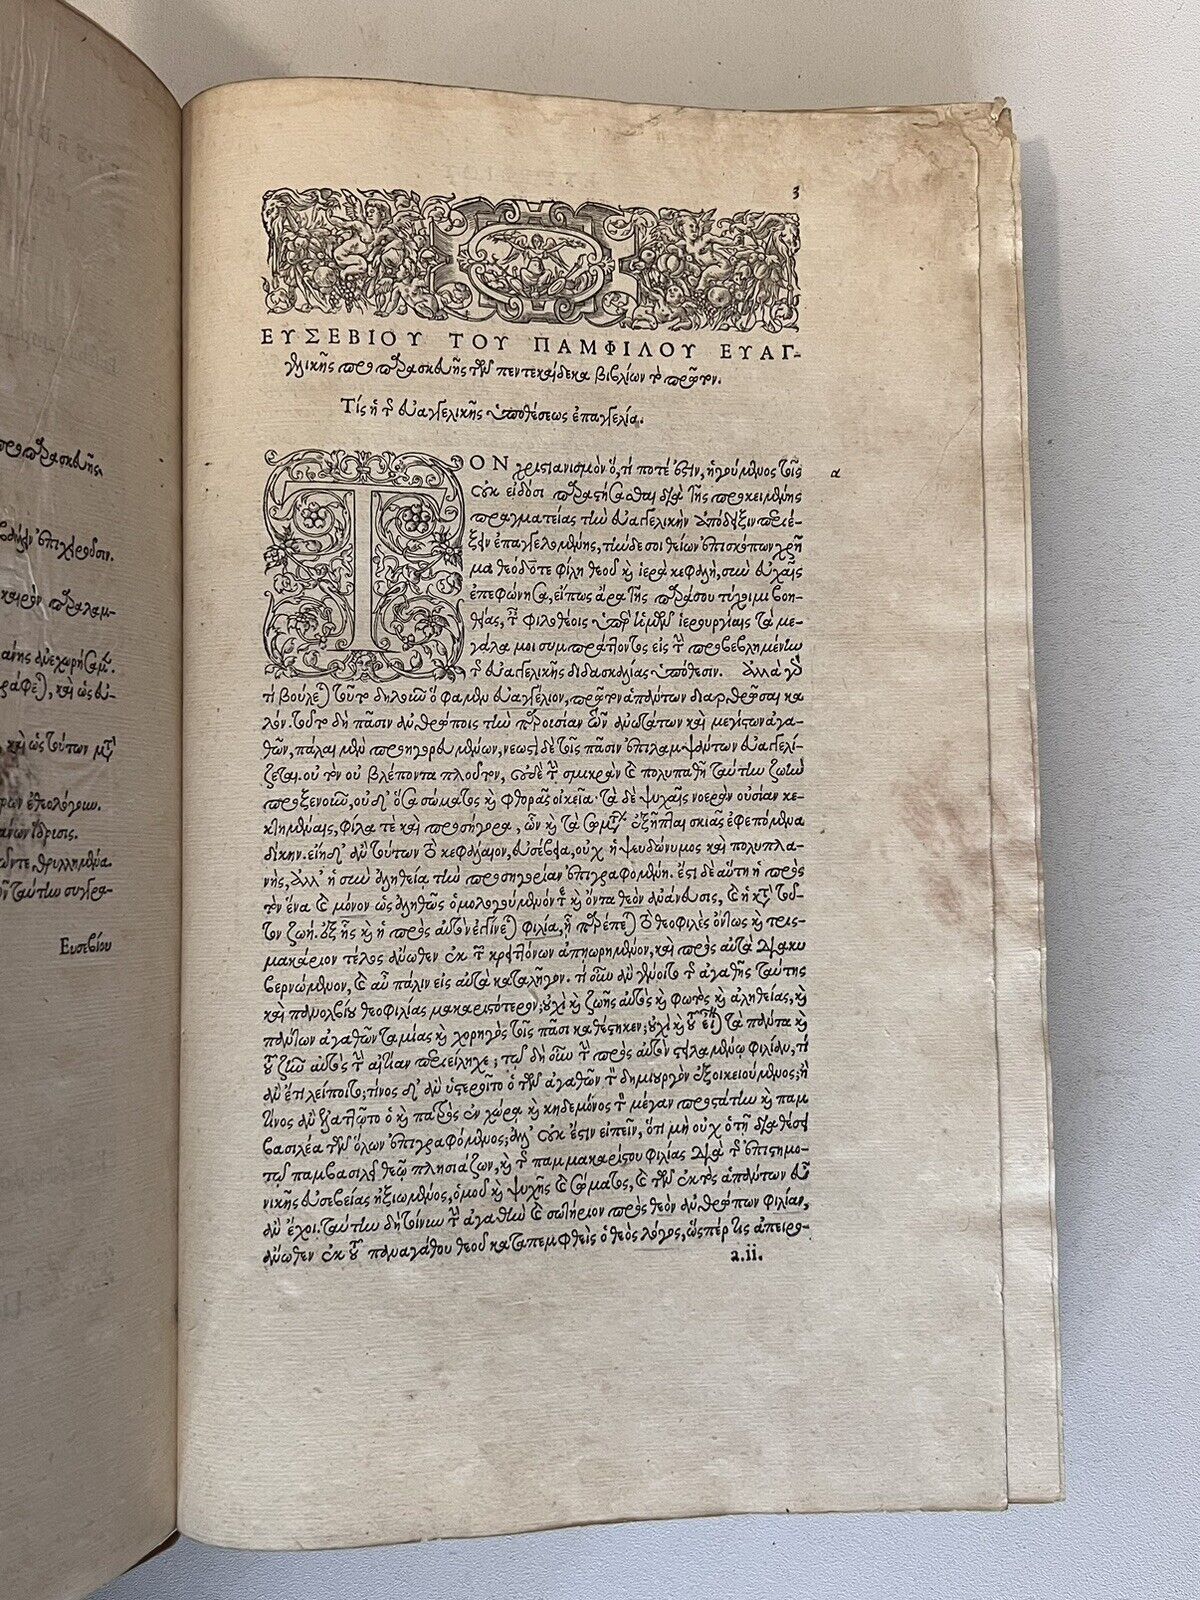 3
ΕΥΣΕΒΙΟΥ ΤΟΥ ΠΑΜΦΙΛΟΥ ΕΥΑΓ-
γελικῆς προπαρασκευῆς τῶν πεντεκαίδεκα βιβλίων τὸ πρῶτον.
Τίς ἡ τῆς εὐαγγελικῆς ὑποθέσεως ἐπαγγελία.
ΤΟΝ χριστιανισμὸν ὅ, τι ποτέ ἐστιν, ἡγούμενος τοῖς
α
οὐκ εἰδόσι παραστήσασθαι διὰ τῆς προκειμένης
πραγματείας τὴν εὐαγγελικὴν ἀπόδειξιν περιέ-
ξειν ἐπαγγελομένης, τήνδε σοι θείων ἐπισκόπων χρῆ
μα θεόδοτε φίλη θεοῦ καὶ ἱερὰ κεφαλὴ, σὺν εὐχαῖς
ἐπεφώνησα, εἴπως ἄρα τῆς παρὰ σοῦ τύχοιμι βοη-
θείας, ταῖς φιλοθέοις ὑπὲρ ἡμῶν ἱερουργίαις τὰ με-
γάλα μοι συμπράττοντος εἰς τὴν προβεβλημένην
τῆς εὐαγγελικῆς διδασκαλίας ὑπόθεσιν. Ἀλλὰ γὰρ
τί βούλεται τοῦτο δηλοῦν ὃ φαμὲν εὐαγγέλιον, πρῶτον ἁπάντων διαρθρῶσαι κα
λόν. τοῦτο δὴ πᾶσιν ἀνθρώποις τὴν παρουσίαν τῶν ἀνωτάτων καὶ μεγίστων ἀγα-
θῶν, πάλαι μὲν προηγορευμένων, νεωστὶ δὲ τοῖς πᾶσιν ἐπιλαμψάντων εὐαγγελί-
ζεται. οὐ τὸν οὐ βλέποντα πλοῦτον, οὐδὲ τὴν σμικρὰν καὶ πολυπαθῆ ταύτην ζωὴν
προξενοῦν, οὐδ' ὅσα σώματος καὶ φθορᾶς οἰκεῖα· τὰ δὲ ψυχαῖς νοερὰν οὐσίαν κε-
κτημέναις, φίλα τὲ καὶ προσήγορα, ὧν καὶ τὰ σωμάτων ἐξῆπται σκιᾶς ἐφεπόμενα
δίκην. εἴη δ' ἂν τούτων τὸ κεφάλαιον, εὐσέβεια, οὐχ ἡ ψευδώνυμος καὶ πολυπλα-
νὴς, ἀλλ' ἡ σὺν ἀληθείᾳ τὴν προσηγορίαν ἐπιγραφομένη. ἔστι δὲ αὕτη ἡ πρὸς
τὸν ἕνα καὶ μόνον ὡς ἀληθῶς ὁμολογούμενόν τε καὶ ὄντα θεὸν ἀνάνευσις, καὶ ἡ κατὰ τοῦ-
τον ζωή. ἐξ ἧς καὶ ἡ πρὸς αὐτὸν ἐγγίνεται φιλία, ᾗ παρέπεται τὸ θεοφιλὲς ὄντως καὶ τρισ-
μακάριον τέλος ἄνωθεν ἐκ τῶν κρειττόνων ἀπῃωρημένον, καὶ πρὸς αὐτὰ διακυ
βερνώμενον, καὶ αὖ πάλιν εἰς αὐτὰ καταλῆγον. τί οὖν ἂν γένοιτο τῆς ἀγαθῆς ταύτης
καὶ πανολβίου θεοφιλίας μακαριστότερον; οὐχὶ καὶ ζωῆς αὐτὸς καὶ φωτὸς καὶ ἀληθείας, καὶ
πάντων ἀγαθῶν ταμίας καὶ χορηγὸς τοῖς πᾶσι καθέστηκεν; οὐχὶ καὶ τοῦ εἶναι τὰ πάντα καὶ
τοῦ ζῆν αὐτὸς τὴν αἰτίαν περιείληχε; τῷ δὴ οὖν τὴν πρὸς αὐτὸν στειλαμένῳ φιλίαν, τί
ἂν ἔτι λείποιτο; τίνος δ' ἂν ὑστεροῖτο ὁ τῶν ἀγαθῶν τὸν δημιουργὸν ἐξοικειούμενος; ἢ
τίνος ἂν ἐλαττῷτο ὁ καὶ πατρὸς ἐν χώρᾳ καὶ κηδεμόνος τὸν μέγαν προστάτην καὶ παμ
βασιλέα τῶν ὅλων ἐπιγραφόμενος; ἀλλ' οὐκ ἔστιν εἰπεῖν, ὅτι μὴ οὐχ ὁ τῇ διαθέσει
τῷ παμβασιλεῖ θεῷ πλησιάζων, καὶ τῆς παμμακαρίστου φιλίας διὰ τῆς ἐπιστημο-
νικῆς εὐσεβείας ἠξιωμένος, ὁμοῦ καὶ ψυχῆς καὶ σώματος, καὶ τῶν ἐκτὸς ἁπάντων εὖ
ἂν ἔχοι. ταύτην δῆτα τὴν ἀγαθὴν καὶ σωτήριον πρὸς θεὸν ἀνθρώπων φιλίαν,
ἄνωθεν ἐκ τοῦ παναγάθου θεοῦ καταπεμφθεὶς ὁ θεὸς λόγος, ὥσπέρ τις ἀπειρο-
a.ii.
Ευσεβίου